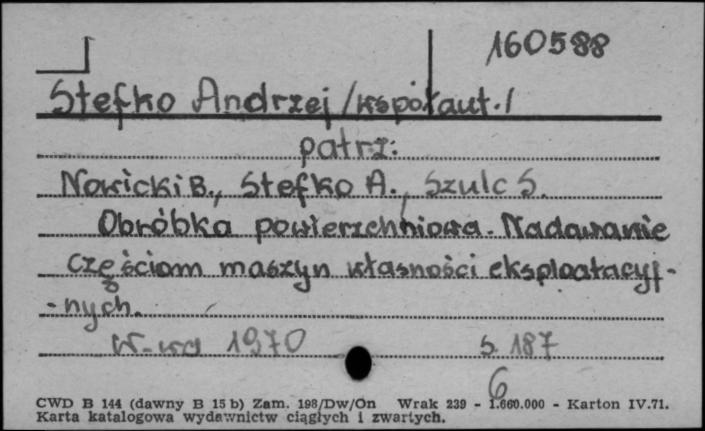 160588
Stefko Andrzej /współaut./
patrz:
Nowicki B., Stefko A., Szulc S.
Obróbka powierzchniowa. Nadawanie
częściom maszyn własności eksploatacyj-
-nych.
W-wa 1970 s. 187
6
CWD B 144 (dawny B 15 b) Zam. 198/Dw/On Wrak 239 - 1.660.000 - Karton IV.71.
Karta katalogowa wydawnictw ciągłych i zwartych.